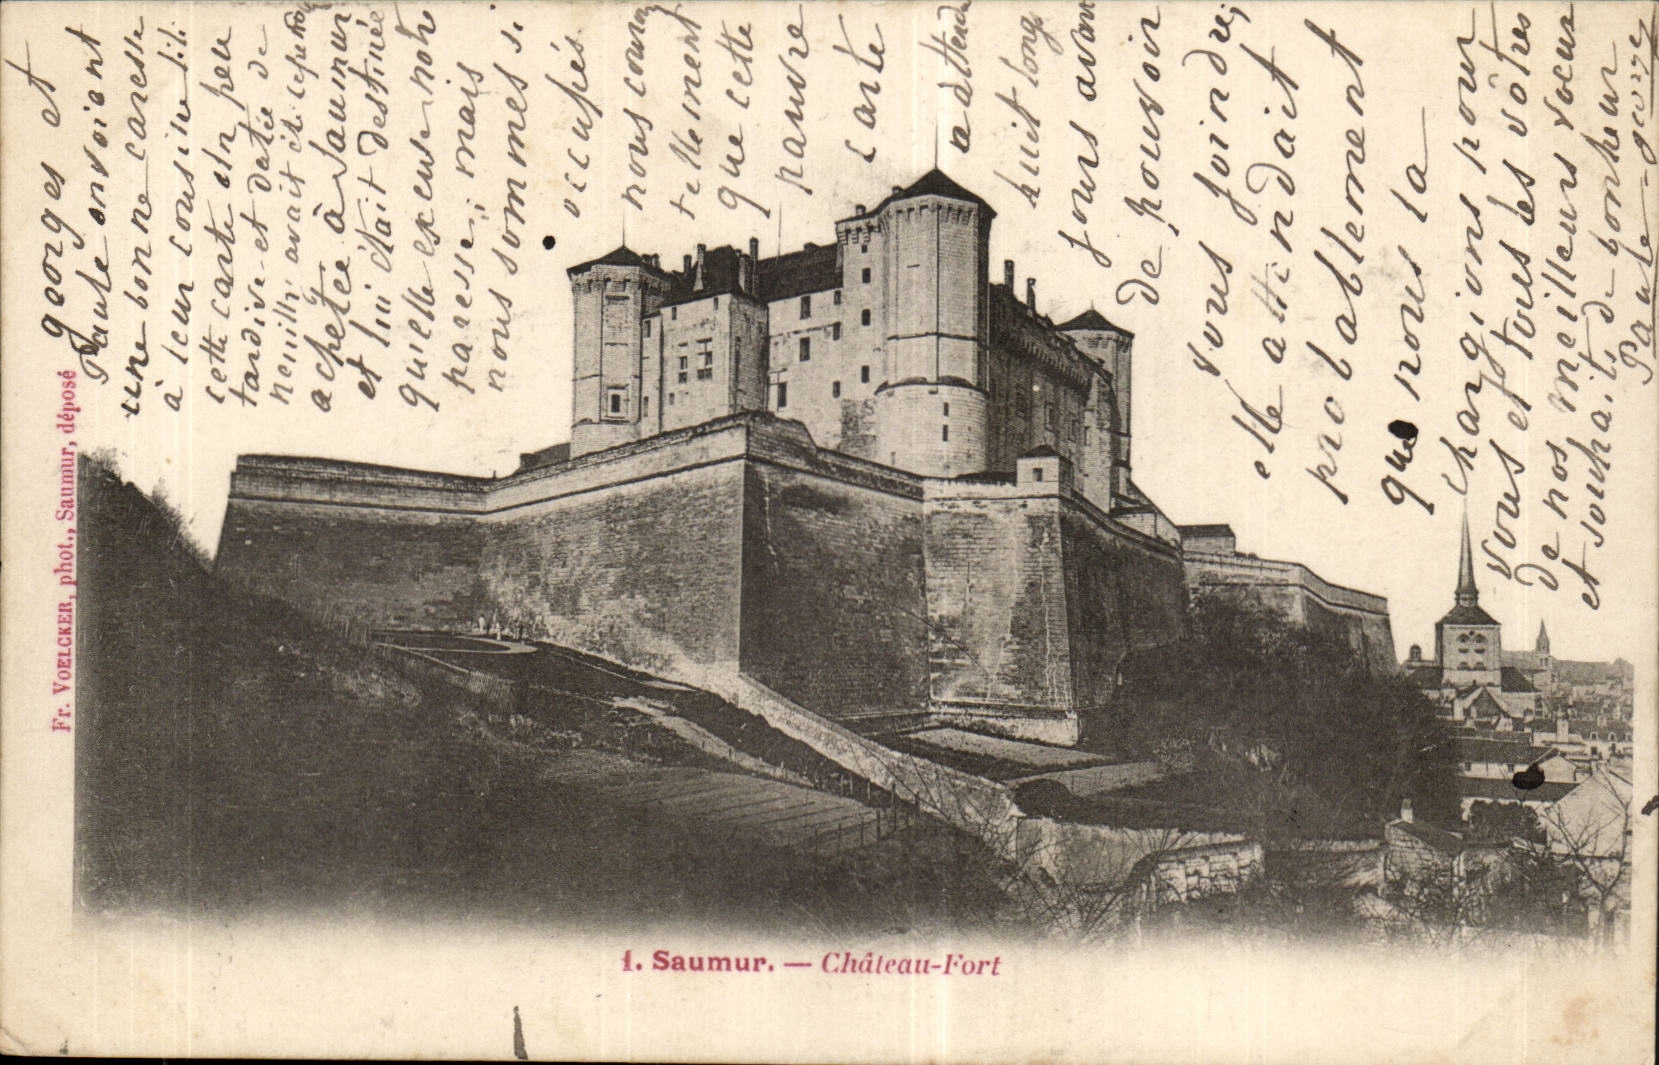 georges et
Paule envoient
une bonne caresse
à leur cousine lili
cette carte un peu
tardive et datée de
avait été
achetée à Saumur
et lui était destinée
qu'elle excuse notre
paresse, mais
nous sommes si
occupés
nous
tellement
que cette
pauvre
carte
a attendu
huit longs
jours avant
de pouvoir
vous joindre,
elle attendait
probablement
que nous la
chargions pour
vous et tous les vôtres
de nos meilleurs voeux
et souhaits de bonheur
Paule-
Fr. VOELCKER, phot., Saumur, déposé
1. Saumur. — Château-Fort